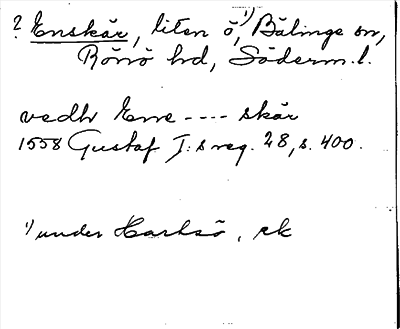 ? Enskär, liten ö,¹⁾ Bälinge sn,
Rönö hd, Söderm. l.
vedh Ene ---- skär
1558 Gustaf I:s reg. 28, s. 400.
¹⁾ under Hartsö, ek